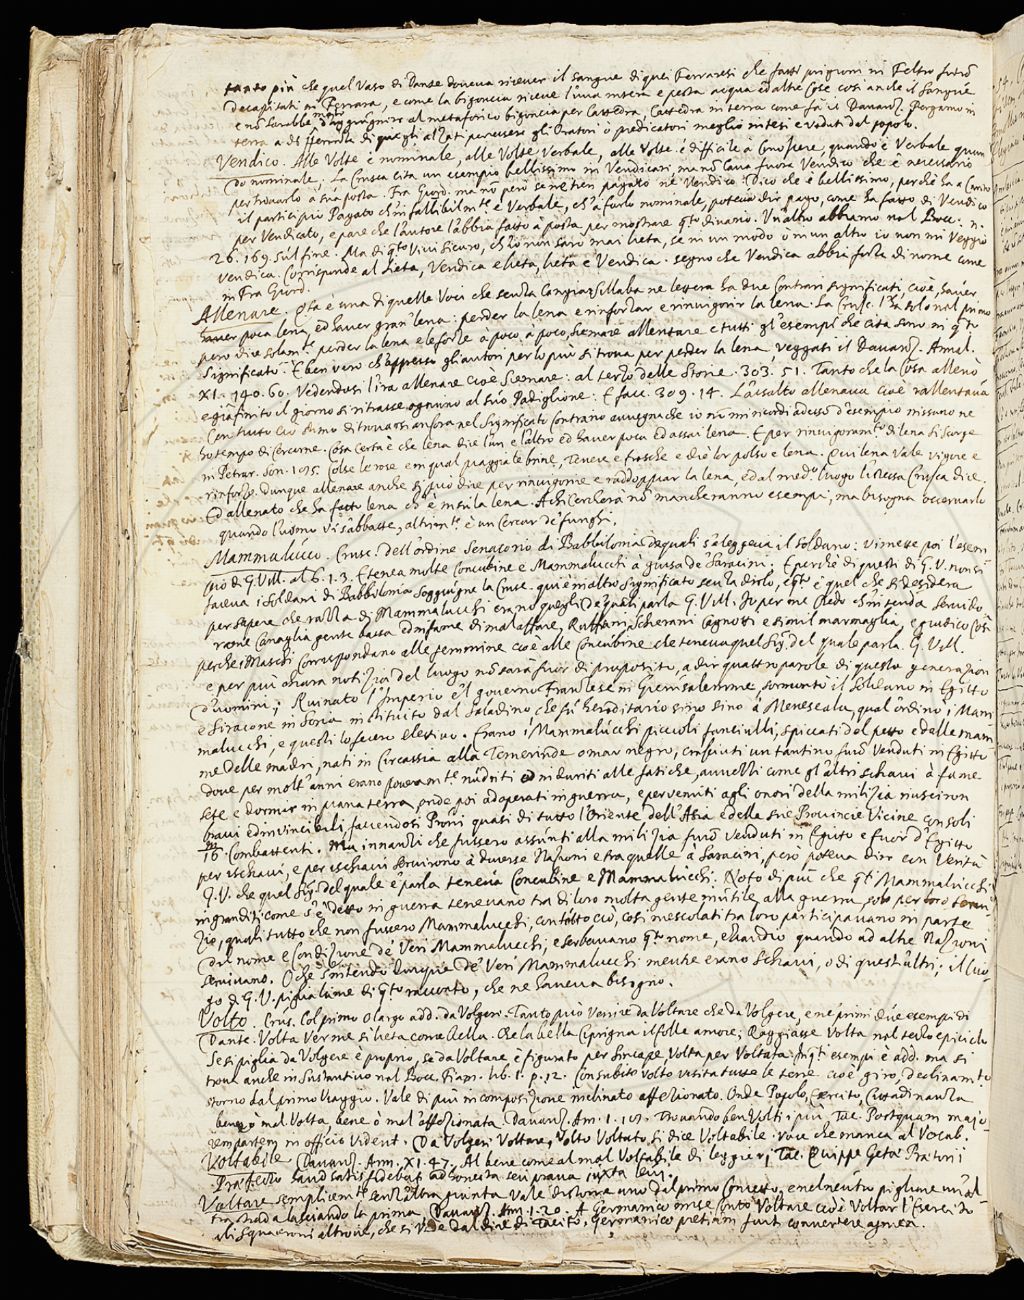 tanto più che quel Vaso di Dante doveva ricever il sangue di quei Ferraresi che fatti prigioni in Feltro furõ
Decapitati in Ferrara, e come la bigoncia riceve l'uva intera e pesta acqua ed altre cose così anche il sangue
e nõ sarebbe male d'aggiugnere al metaforico bigoncia per Cattedra, Cattedra in terra come fà il Davanz. Pergamo in
terra a di sferenza di quegli alzati per essere gli Oratori ò predicatori meglio intesi e veduti dal popolo.
Vendico. Alle Volte è nominale, alle Volte Verbale, alle Volte è difficile a conoscere, quando è Verbale quan
do nominale, La Crusca cita un esempio bellissimo in Vendicari ma nõ cava fuora Vendico che è necessario
per trovarlo a sua posta. Fra Giord. ma nõ però se ne tien pagato nè Vendico: Dico che è bellissimo, perchè ha a canto
il participio Pagato ch'infallibilmte è Verbale, ch'à farlo nominale, poteva dir pago, come ha fatto di Vendico
per Vendicato, e pare che l'autore l'abbia fatto à posta per mostrare qto divario. Un'altro abbiamo nel Bocc. n.
26. 169. sul fine. Ma di qto vivi sicuro, ch'io non sarò mai lieta, se in un modo ò in un altro io non mi veggio
vendica. Corrisponde al lieta, Vendica e lieta, lieta e Vendica. segno che Vendica abbia forza di nome come
in Fra Giord.
Allenare. Qta è una di quelle Voci che senza cangiar sillaba nè lettera ha due Contrari significati, cioè, haver
haver poca lena, ed haver gran' lena: perder la lena e rinforzar e rinvigorir la lena. La Crusc. l'ha solo nel primo
però dice solamte perder la lena e le forze à poco, à poco, scemare allentare e tutti gl'esempi che cita sono in qto
Significato. È ben vero ch'appresso gli autori per lo più si trova per perder la lena, veggasi il Davanz. Annal.
XI. 140. 60. Vedendosi l'ira allenare cioè scemare: al terzo delle Storie. 303. 51. Tanto che la cosa allenò
e già finito il giorno si ritrasse ognuno al suo Padiglione: E facc. 309. 14. L'assalto allenava cioè rallentava
Con tutto ciò stimo di trovarsi ancora nel significato Contrario avvegna che io nõ mi ricordi adesso d'esempio nissuno nè
ho tempo di cercarne. Cosa certa è che lena dice l'un e l'altro ed haver poca ed assai lena. E per rinvigoramto di lena si scorge
in Petrar. Son. 105. Colse le rose e in qual piaggia le brine, Tenere e fresche e diè lor polso e lena. Qui lena vale vigore e
rinforzo. dunque allenare anche si può dire per rinvigorire e raddoppiar la lena, ed al medo luogo l'istessa Crusca dice.
Ed allenato che ha fatto lena ch'è in sù la lena. A chi cercherà nõ mancheranno esempi, ma bisogna osservarlo
quando l'uomo vi s'abbatte, altrimte è un cercar de' funghi.
Mammalucco. Crusc. dell'ordine Senatorio di Babbilonia de quali s'eleggeva il soldano: vi mette poi l'esem
pio di G. Vill. al 6. 1. 3. E tenea molte Concubine e Mammalucchi à guisa de' Saracini. E perchè di questi di G. V. non si
faceva i Soldani di Babbilonia soggiugne la Crusc. qui è in altro significato senza dirlo, e qto è quel che si desidera
per sapere che razza di Mammalucchi erano quegli de' quali parla G. Vill. Io per me credo ch'intenda servido
rame Canaglia gente bassa ed infame di mal'affare, Ruffiani, Scherani Cagnotti e simil marmaglia, e giudico così
perchè i Maschi Corrispondano alle femmine cioè alle Concubine che teneva quel Sig. del quale parla G. Vill.
e per più chiara notizia del luogo nõ sarà fuor di proposito, a dir quattro parole di questa generazion
d'uomini; Ruinato l'Imperio e'l governo Franzese in Gierusalemme, sormontò il Soldano in Egitto
e Siracone in Soria instituito dal Saladino che fu hereditario sino sino à Meneseala, qual ordinò i Mam
malucchi, e questi lo fecero elettivo. Erano i Mammalucchi piccoli fanciulli, spiccati dal petto e delle mam
me delle madri, nati in Circassia alla Temerinda o mar negro, cresciuti un tantino furõ Venduti in Egitto
dove per molt'anni erano poveramte nudriti ed induriti alle fatiche, avvezzi come gl'altri schiavi à fame
sete e dormir in piana terra, onde poi adoperati in guerra, e pervenuti agli onori della milizia riuscivon
bravi ed invincibili, facendosi Proni quasi di tutto l'Oriente dell'Asia e delle sue Provincie Vicine con soli
16m Combattenti. Ma innanzi che fussero assunti alla milizia furõ Venduti in Egitto e fuor d'Egitto
per ischiavi, e per ischiavi servirono à diverse Nazioni e tra quelle à Saracini, però poteva dir con Verità
G. V. che quel Sig. del quale è parla teneva Concubine e Mammalucchi. Noto di più che qti Mammalucchi
ingranditi come s'è detto in guerra tenevano tra di loro molta gente inutile, alla guerra, solo per loro servi
zio, quali tutto che non fussero Mammalucchi, con tutto ciò, così mescolati tra loro participavano in parte
del nome e condizione de' Veri Mammalucchi, e serbavano qto nome, eziandio quando ad altre Nazioni
servivano. O che s'intenda dunque de' Veri Mammalucchi mentre erano schiavi, o di quest'altri; il luo
go di G. V. piglia lume di qto racconto, che ne haveva bisogno.
Volto. Crus. Col primo O largo add. da Volgere. Tanto può Venire da Voltare che da Volgere, e nè primi due esempi di
Dante. Volta Ver me si lieta come bella. Che la bella Ciprigna il folle amore; Raggiasse Volta nel terzo epiciclo
Se si piglia da Volgere è proprio, se da Voltare è figurato per sincope Volta per Voltata: In qti esempi è add. ma si
trova anche in Sustantivo nel Bocc. Fiam. lib. 1. p. 12. Con subito volto visita tutte le terre cioè giro, declinamto
ritorno dal primo viaggio. Vale di più in composizione inclinato affezionato. Onde Popolo, Esercito, Cittadinanza
bene, ò mal Volta, bene ò mal' affezionata. Davanz. Am. 1. 107. Trovando ben Volti i più, Tac. Postquam majo
rem partem in officio vident. Da Volgere Voltare, Volto Voltato, si dice Voltabile. Voce che manca al Vocab.
Voltabile. Davanz. Ann. XI. 47. Al bene come al mal Voltabile di leggieri, Tac. Quippe Getæ Prætorii
Præfecto haud satis fidebat ad honesta seu prava juxta levi.
Voltare semplicemte senz'altra giunta Vale distorre uno dal primo Concetto, e nel neutro pigliare un al
tra strada lasciando la prima. Davanz. Ann. 1. 20. A Germanico mise conto Voltare cioè Voltar l'Esercito
ò li squadroni altrove, che si vede dal dire di Tacito, Germanico pretium fuit convertere agmen.